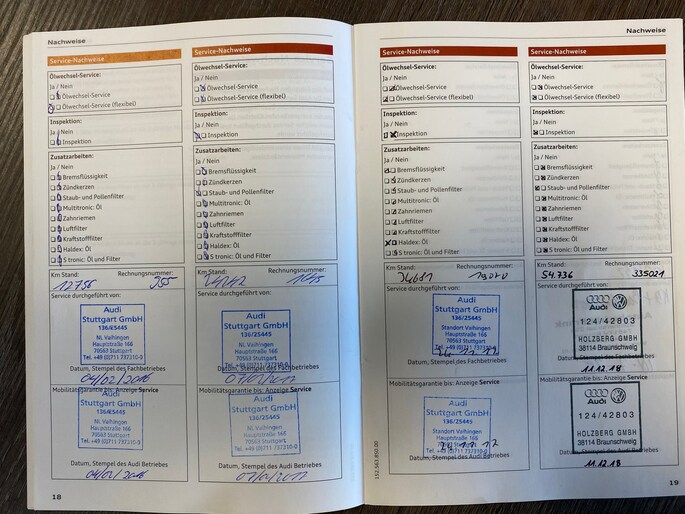 Nachweise
Service-Nachweise
Ölwechsel-Service:
Ja / Nein
Ölwechsel-Service
Ölwechsel-Service (flexibel)
Inspektion:
Ja / Nein
Inspektion
Zusatzarbeiten:
Ja / Nein
Bremsflüssigkeit
Zündkerzen
Staub- und Pollenfilter
Multitronic: Öl
Zahnriemen
Luftfilter
Kraftstofffilter
Haldex: Öl
S tronic: Öl und Filter
Km Stand: Rechnungsnummer:
12756 955
Service durchgeführt von:
Audi
Stuttgart GmbH
136/25445
NL Vaihingen
Hauptstraße 166
70563 Stuttgart
Tel. +49 (0)711 737310-0
Datum, Stempel des Fachbetriebes
04/02/2016
Mobilitätsgarantie bis: Anzeige Service
Audi
Stuttgart GmbH
136/25445
NL Vaihingen
Hauptstraße 166
70563 Stuttgart
Tel. +49 (0)711 737310-0
Datum, Stempel des Audi Betriebes
04/02/2016
18
Service-Nachweise
Ölwechsel-Service:
Ja / Nein
Ölwechsel-Service
Ölwechsel-Service (flexibel)
Inspektion:
Ja / Nein
Inspektion
Zusatzarbeiten:
Ja / Nein
Bremsflüssigkeit
Zündkerzen
Staub- und Pollenfilter
Multitronic: Öl
Zahnriemen
Luftfilter
Kraftstofffilter
Haldex: Öl
S tronic: Öl und Filter
Km Stand: Rechnungsnummer:
Service durchgeführt von:
Audi
Stuttgart GmbH
136/25445
NL Vaihingen
Hauptstraße 166
70563 Stuttgart
Tel. +49 (0)711 737310-0
Datum, Stempel des Fachbetriebes
07/02/2017
Mobilitätsgarantie bis: Anzeige Service
Audi
Stuttgart GmbH
136/25445
NL Vaihingen
Hauptstraße 166
70563 Stuttgart
Tel. +49 (0)711 737310-0
Datum, Stempel des Audi Betriebes
07/02/2017
Nachweise
Service-Nachweise
Ölwechsel-Service:
Ja / Nein
Ölwechsel-Service
Ölwechsel-Service (flexibel)
Inspektion:
Ja / Nein
Inspektion
Zusatzarbeiten:
Ja / Nein
Bremsflüssigkeit
Zündkerzen
Staub- und Pollenfilter
Multitronic: Öl
Zahnriemen
Luftfilter
Kraftstofffilter
Haldex: Öl
S tronic: Öl und Filter
Km Stand: Rechnungsnummer:
Service durchgeführt von:
Audi
Stuttgart GmbH
136/25445
Standort Vaihingen
Hauptstraße 166
70563 Stuttgart
Tel. +49 (0)711 737310-0
Datum, Stempel des Fachbetriebes
Mobilitätsgarantie bis: Anzeige Service
Audi
Stuttgart GmbH
136/25445
Standort Vaihingen
Hauptstraße 166
70563 Stuttgart
Tel. +49 (0)711 737310-0
Datum, Stempel des Audi Betriebes
152.561.850.00
Service-Nachweise
Ölwechsel-Service:
Ja / Nein
Ölwechsel-Service
Ölwechsel-Service (flexibel)
Inspektion:
Ja / Nein
Inspektion
Zusatzarbeiten:
Ja / Nein
Bremsflüssigkeit
Zündkerzen
Staub- und Pollenfilter
Multitronic: Öl
Zahnriemen
Luftfilter
Kraftstofffilter
Haldex: Öl
S tronic: Öl und Filter
Km Stand: Rechnungsnummer:
54.736 335021
Service durchgeführt von:
Audi
124/42803
HOLZBERG GMBH
38114 Braunschweig
Datum, Stempel des Fachbetriebes
11.12.18
Mobilitätsgarantie bis: Anzeige Service
Audi
124/42803
HOLZBERG GMBH
38114 Braunschweig
Datum, Stempel des Audi Betriebes
11.12.18
19